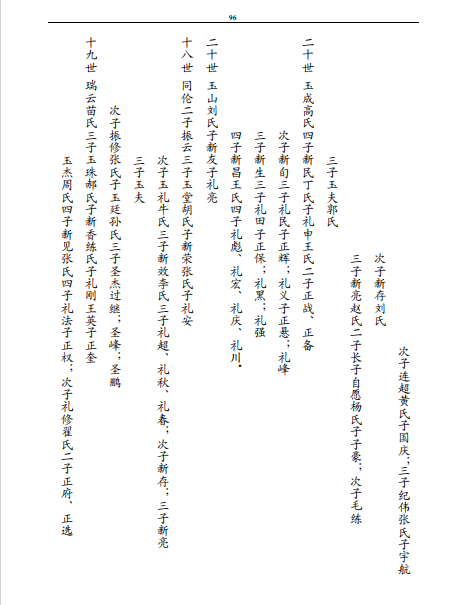 96
次子连超黄氏子国庆；三子纪伟张氏子宇航
三子新亮赵氏二子长子自愿杨氏子子豪；次子毛练
次子新存刘氏
三子玉夫郭氏
二十世 玉成高氏四子新民丁氏子礼申王氏二子正战、正备
次子新旬三子礼民子正辉；礼义子正悬；礼峰
三子新生三子礼田子正保；礼黑；礼强
四子新昌王氏四子礼彪、礼宏、礼庆、礼川。
二十世 玉山刘氏子新友子礼亮
十八世 同伦二子振云三子玉堂胡氏子新荣张氏子礼安
次子玉礼牛氏三子新效李氏三子礼超、礼秋、礼春；次子新存；三子新亮
三子玉夫
次子振修张氏子玉廷孙氏三子圣杰过继；圣峰；圣鹏
十九世 瑞云苗氏三子玉珠郝氏子新香练氏子礼刚王英子正奎
玉杰周氏四子新见张氏四子礼法子正权；次子礼修翟氏二子正府、正选